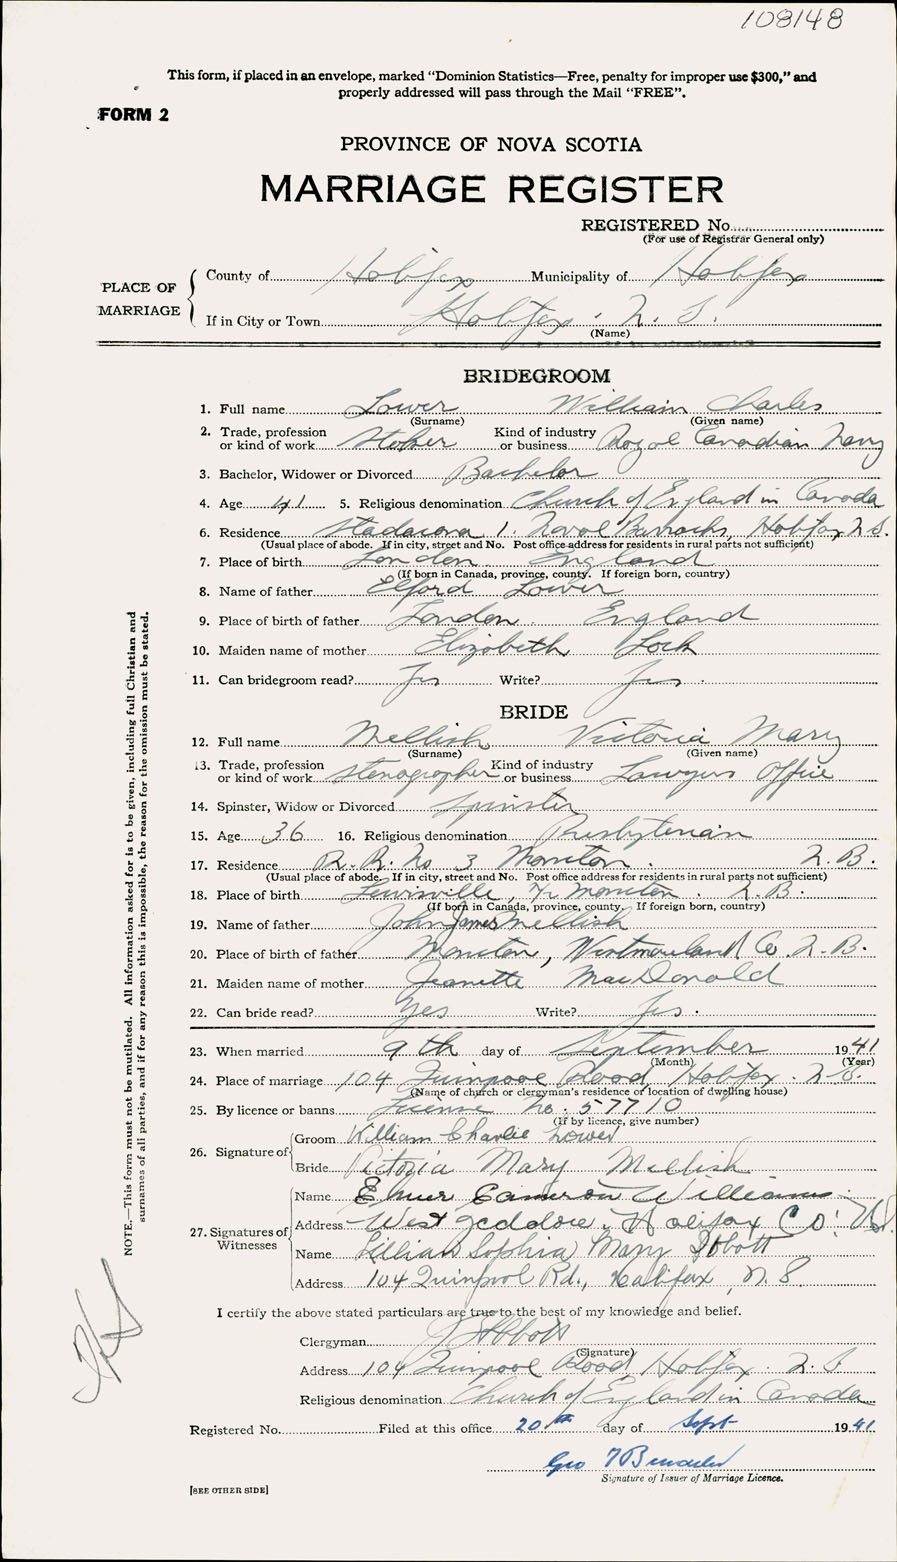 108148
This form, if placed in an envelope, marked "Dominion Statistics—Free, penalty for improper use $300," and
properly addressed will pass through the Mail "FREE".
FORM 2
PROVINCE OF NOVA SCOTIA
MARRIAGE REGISTER
REGISTERED No.
(For use of Registrar General only)
PLACE OF MARRIAGE
County of Halifax Municipality of Halifax
If in City or Town Halifax . N. S.
(Name)
BRIDEGROOM
1. Full name Lower William Charles
(Surname) (Given name)
2. Trade, profession or kind of work Stoker Kind of industry or business Royal Canadian Navy
3. Bachelor, Widower or Divorced Bachelor
4. Age 41 5. Religious denomination Church of England in Canada
6. Residence Stadacona 1. Naval Barracks, Halifax N.S.
(Usual place of abode. If in city, street and No. Post office address for residents in rural parts not sufficient)
7. Place of birth London England
(If born in Canada, province, county. If foreign born, country)
8. Name of father Elford Lower
9. Place of birth of father London England
10. Maiden name of mother Elizabeth Lock
11. Can bridegroom read? Yes Write? Yes.
BRIDE
12. Full name Mellish Victoria Mary
(Surname) (Given name)
13. Trade, profession or kind of work Stenographer Kind of industry or business Lawyers Office
14. Spinster, Widow or Divorced Spinster
15. Age 36 16. Religious denomination Presbyterian
17. Residence R. R. No 3 Moncton . N. B.
(Usual place of abode. If in city, street and No. Post office address for residents in rural parts not sufficient)
18. Place of birth Lewisville, Nr Moncton . N. B.
(If born in Canada, province, county. If foreign born, country)
19. Name of father John James Mellish
20. Place of birth of father Moncton, Westmorland Co. N. B.
21. Maiden name of mother Jeanette MacDonald
22. Can bride read? Yes Write? Yes.
23. When married 9th day of September 1941
(Month) (Year)
24. Place of marriage 104 Quinpool Road Halifax . N. S.
(Name of church or clergyman's residence or location of dwelling house)
25. By licence or banns License No. 57710
(If by licence, give number)
26. Signature of
Groom William Charles Lower
Bride Victoria Mary Mellish
27. Signatures of Witnesses
Name Elmer Cameron Williams
Address West Jeddore, Halifax Co. N.S.
Name Lillian Sophia Mary Abbott
Address 104 Quinpool Rd., Halifax, N. S.
I certify the above stated particulars are true to the best of my knowledge and belief.
Clergyman Abbott
(Signature)
Address 104 Quinpool Road Halifax . N. S
Religious denomination Church of England in Canada
Registered No. Filed at this office 20th day of Sept 1941
Geo
Signature of Issuer of Marriage Licence.
[SEE OTHER SIDE]
NOTE.—This form must not be mutilated. All information asked for is to be given, including full Christian and
surnames of all parties, and if for any reason this is impossible, the reason for the omission must be stated.